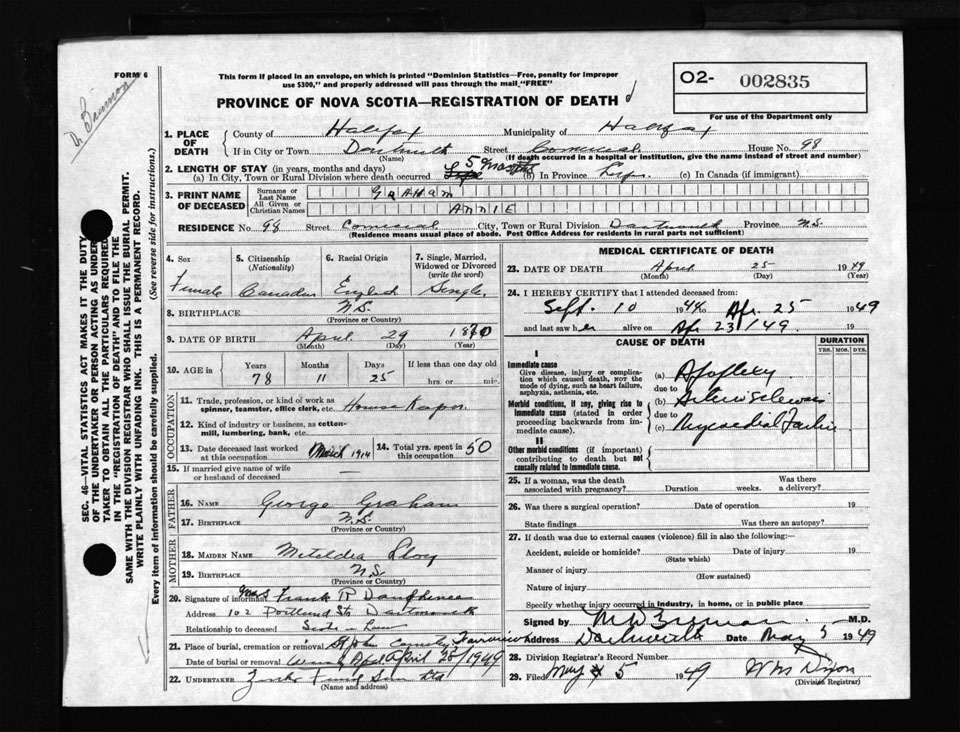 FORM 6
This form if placed in an envelope, on which is printed "Dominion Statistics—Free, penalty for improper
use $300," and properly addressed will pass through the mail "FREE"
O2- 002835
For use of the Department only
PROVINCE OF NOVA SCOTIA—REGISTRATION OF DEATH
SEC. 46—VITAL STATISTICS ACT MAKES IT THE DUTY
OF THE UNDERTAKER OR PERSON ACTING AS UNDER-
TAKER TO OBTAIN ALL THE PARTICULARS REQUIRED
IN THE "REGISTRATION OF DEATH" AND TO FILE THE
SAME WITH THE DIVISION REGISTRAR WHO SHALL ISSUE THE BURIAL PERMIT.
WRITE PLAINLY WITH UNFADING INK. THIS IS A PERMANENT RECORD.
Every item of Information should be carefully supplied. (See reverse side for instructions.)
1. PLACE OF DEATH County of Halifax Municipality of Halifax
If in City or Town Dartmouth Street House No. 98
(Name) (If death occurred in a hospital or institution, give the name instead of street and number)
2. LENGTH OF STAY (in years, months and days)
(a) In City, Town or Rural Division where death occurred 5 months (b) In Province Life (c) In Canada (if immigrant)
3. PRINT NAME OF DECEASED
Surname or Last Name GRAHAM
All Given or Christian Names ANNIE
RESIDENCE No. 98 Street City, Town or Rural Division Dartmouth Province N.S.
(Residence means usual place of abode. Post Office Address for residents in rural parts not sufficient)
4. Sex 5. Citizenship (Nationality) 6. Racial Origin 7. Single, Married, Widowed or Divorced (write the word)
Female Canadian English Single
8. BIRTHPLACE N.S.
(Province or Country)
9. DATE OF BIRTH April 29 1870
(Month) (Day) (Year)
10. AGE in Years Months Days If less than one day old
78 11 25 hrs. or min.
OCCUPATION
11. Trade, profession, or kind of work as
spinner, teamster, office clerk, etc. House Keeper
12. Kind of industry or business, as cotten-
mill, lumbering, bank, etc.
13. Date deceased last worked at this occupation March 1914 14. Total yrs. spent in this occupation 50
15. If married give name of wife
or husband of deceased
FATHER
16. NAME George Graham
17. BIRTHPLACE N.S.
(Province or Country)
MOTHER
18. MAIDEN NAME
19. BIRTHPLACE N.S.
(Province or Country)
20. Signature of informant Mrs Frank R Dauphinee
Address 102 Portland St Dartmouth
Relationship to deceased Sister in Law
21. Place of burial, cremation or removal St John Cemetery Fairview
Date of burial or removal April 28/1949
22. UNDERTAKER
(Name and address)
MEDICAL CERTIFICATE OF DEATH
23. DATE OF DEATH April 25 1949
(Month) (Day) (Year)
24. I HEREBY CERTIFY that I attended deceased from:
Sept. 10 1948 Apr. 25 1949
and last saw her alive on Apr 23/49. 19
CAUSE OF DEATH
DURATION
YRS. MOS. DYS.
I
Immediate cause
Give disease, injury or complica-
tion which caused death, not the
mode of dying, such as heart failure,
asphyxia, asthenia, etc.
(a) Apoplexy
due to
Morbid conditions, if any, giving rise to
immediate cause (stated in order
proceeding backwards from im-
mediate cause).
(b)
due to
(c) Myocardial Failure
II
Other morbid conditions (if important)
contributing to death but not
causally related to immediate cause.
25. If a woman, was the death
associated with pregnancy? Duration weeks. Was there
a delivery?
26. Was there a surgical operation? Date of operation 19
State findings Was there an autopsy?
27. If death was due to external causes (violence) fill in also the following:—
Accident, suicide or homicide? Date of injury 19
(State which)
Manner of injury
(How sustained)
Nature of injury
Specify whether injury occurred in industry, in home, or in public place
Signed by M.D.
Address Dartmouth Date May 5 1949
28. Division Registrar's Record Number
29. Filed May 5 1949 Dixon
(Division Registrar)